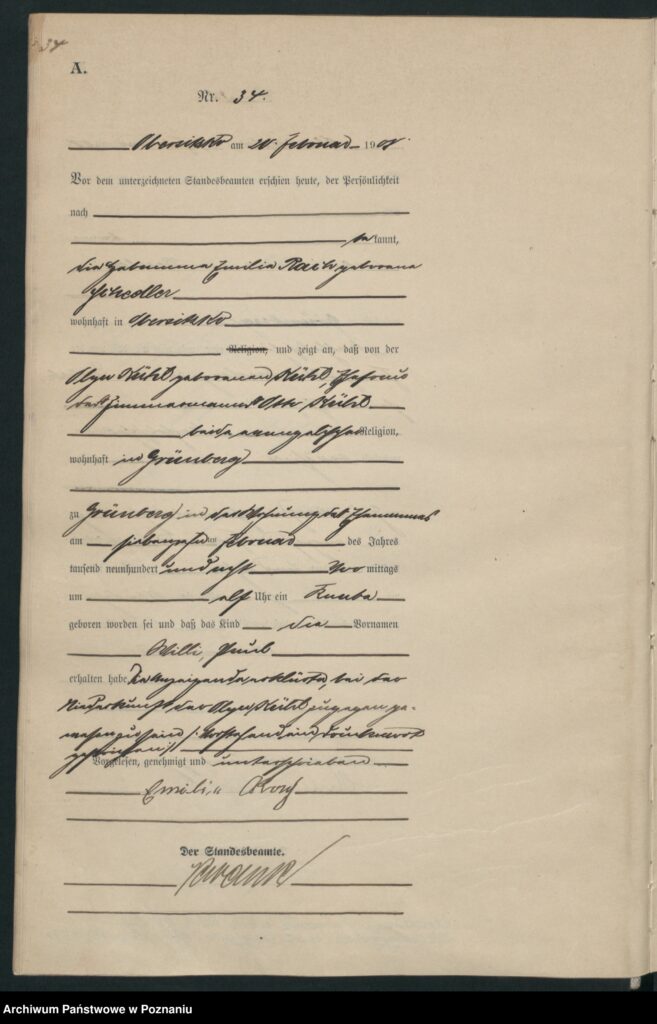 34
A.
Nr. 34.
Obersitzko am 20. Februar 1908.
Vor dem unterzeichneten Standesbeamten erschien heute, der Persönlichkeit
nach
be kannt,
die Hebamme Emilie geborene
Schedler
wohnhaft in Obersitzko
Religion, und zeigt an, daß von der
Olga Kühl geborenen Kühl, Ehefrau
des Zimmermanns Otto Kühl
beide evangelischer Religion,
wohnhaft in Grünberg
zu Grünberg in der Wohnung des Ehemannes
am siebenzehnten Februar des Jahres
tausend neunhundert und acht Vor mittags
um elf Uhr ein Knabe
geboren worden sei und daß das Kind die Vornamen
Willi, Paul
erhalten habe. Die Anzeigende erklärte, bei der
Niederkunft der Olga Kühl zugegen ge-
wesen zu sein /: Vorstehend ein Druckwort
gestrichen :/
Vorgelesen, genehmigt und unterschrieben
Emilie
Der Standesbeamte.
Archiwum Państwowe w Poznaniu